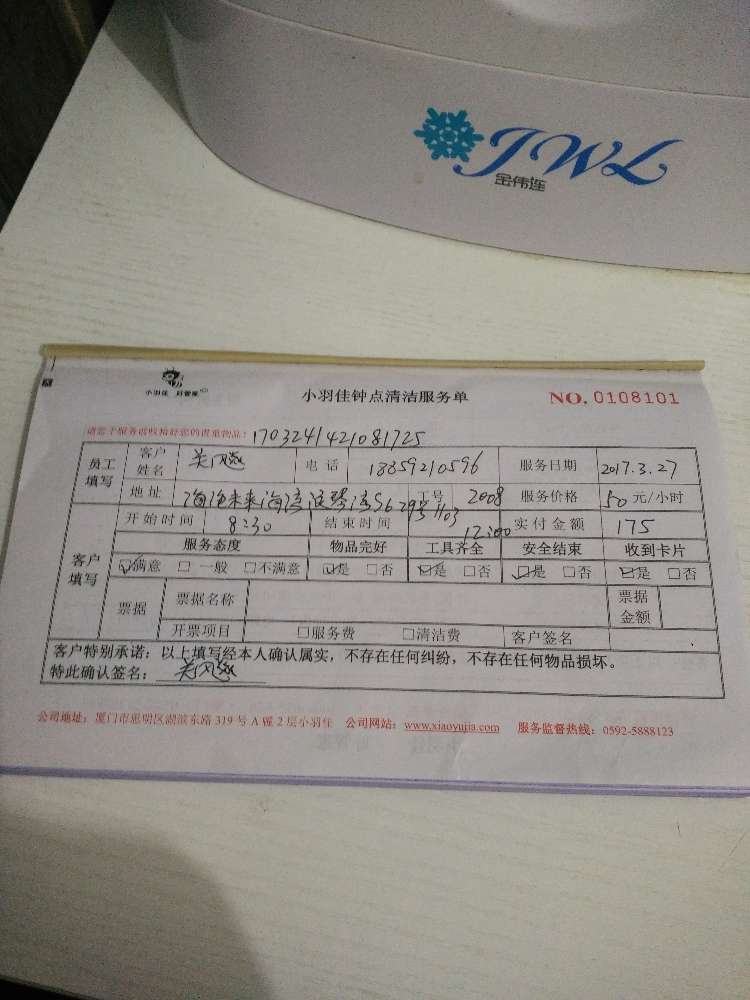 JWL
金伟连
小羽佳 好管家
小羽佳钟点清洁服务单 NO. 0108101
请您于服务前收拾好您的贵重物品! 1703241421081725
员工填写 客户姓名 关风 电话 18859210596 服务日期 2017.3.27
地址 海沧未来海湾 S6 2935 1103 工号 2008 服务价格 50 元/小时
开始时间 8:30 结束时间 12:00 实付金额 175
客户填写 服务态度 物品完好 工具齐全 安全结束 收到卡片
☑满意 □一般 □不满意 ☑是 □否 ☑是 □否 ☑是 □否 ☑是 □否
票据 票据名称 票据金额
开票项目 □服务费 □清洁费 客户签名
客户特别承诺:以上填写经本人确认属实,不存在任何纠纷,不存在任何物品损坏。
特此确认签名: 关风
公司地址:厦门市思明区湖滨东路 319 号 A 幢 2 层小羽佳 公司网站:www.xiaoyujia.com 服务监督热线:0592-5888123